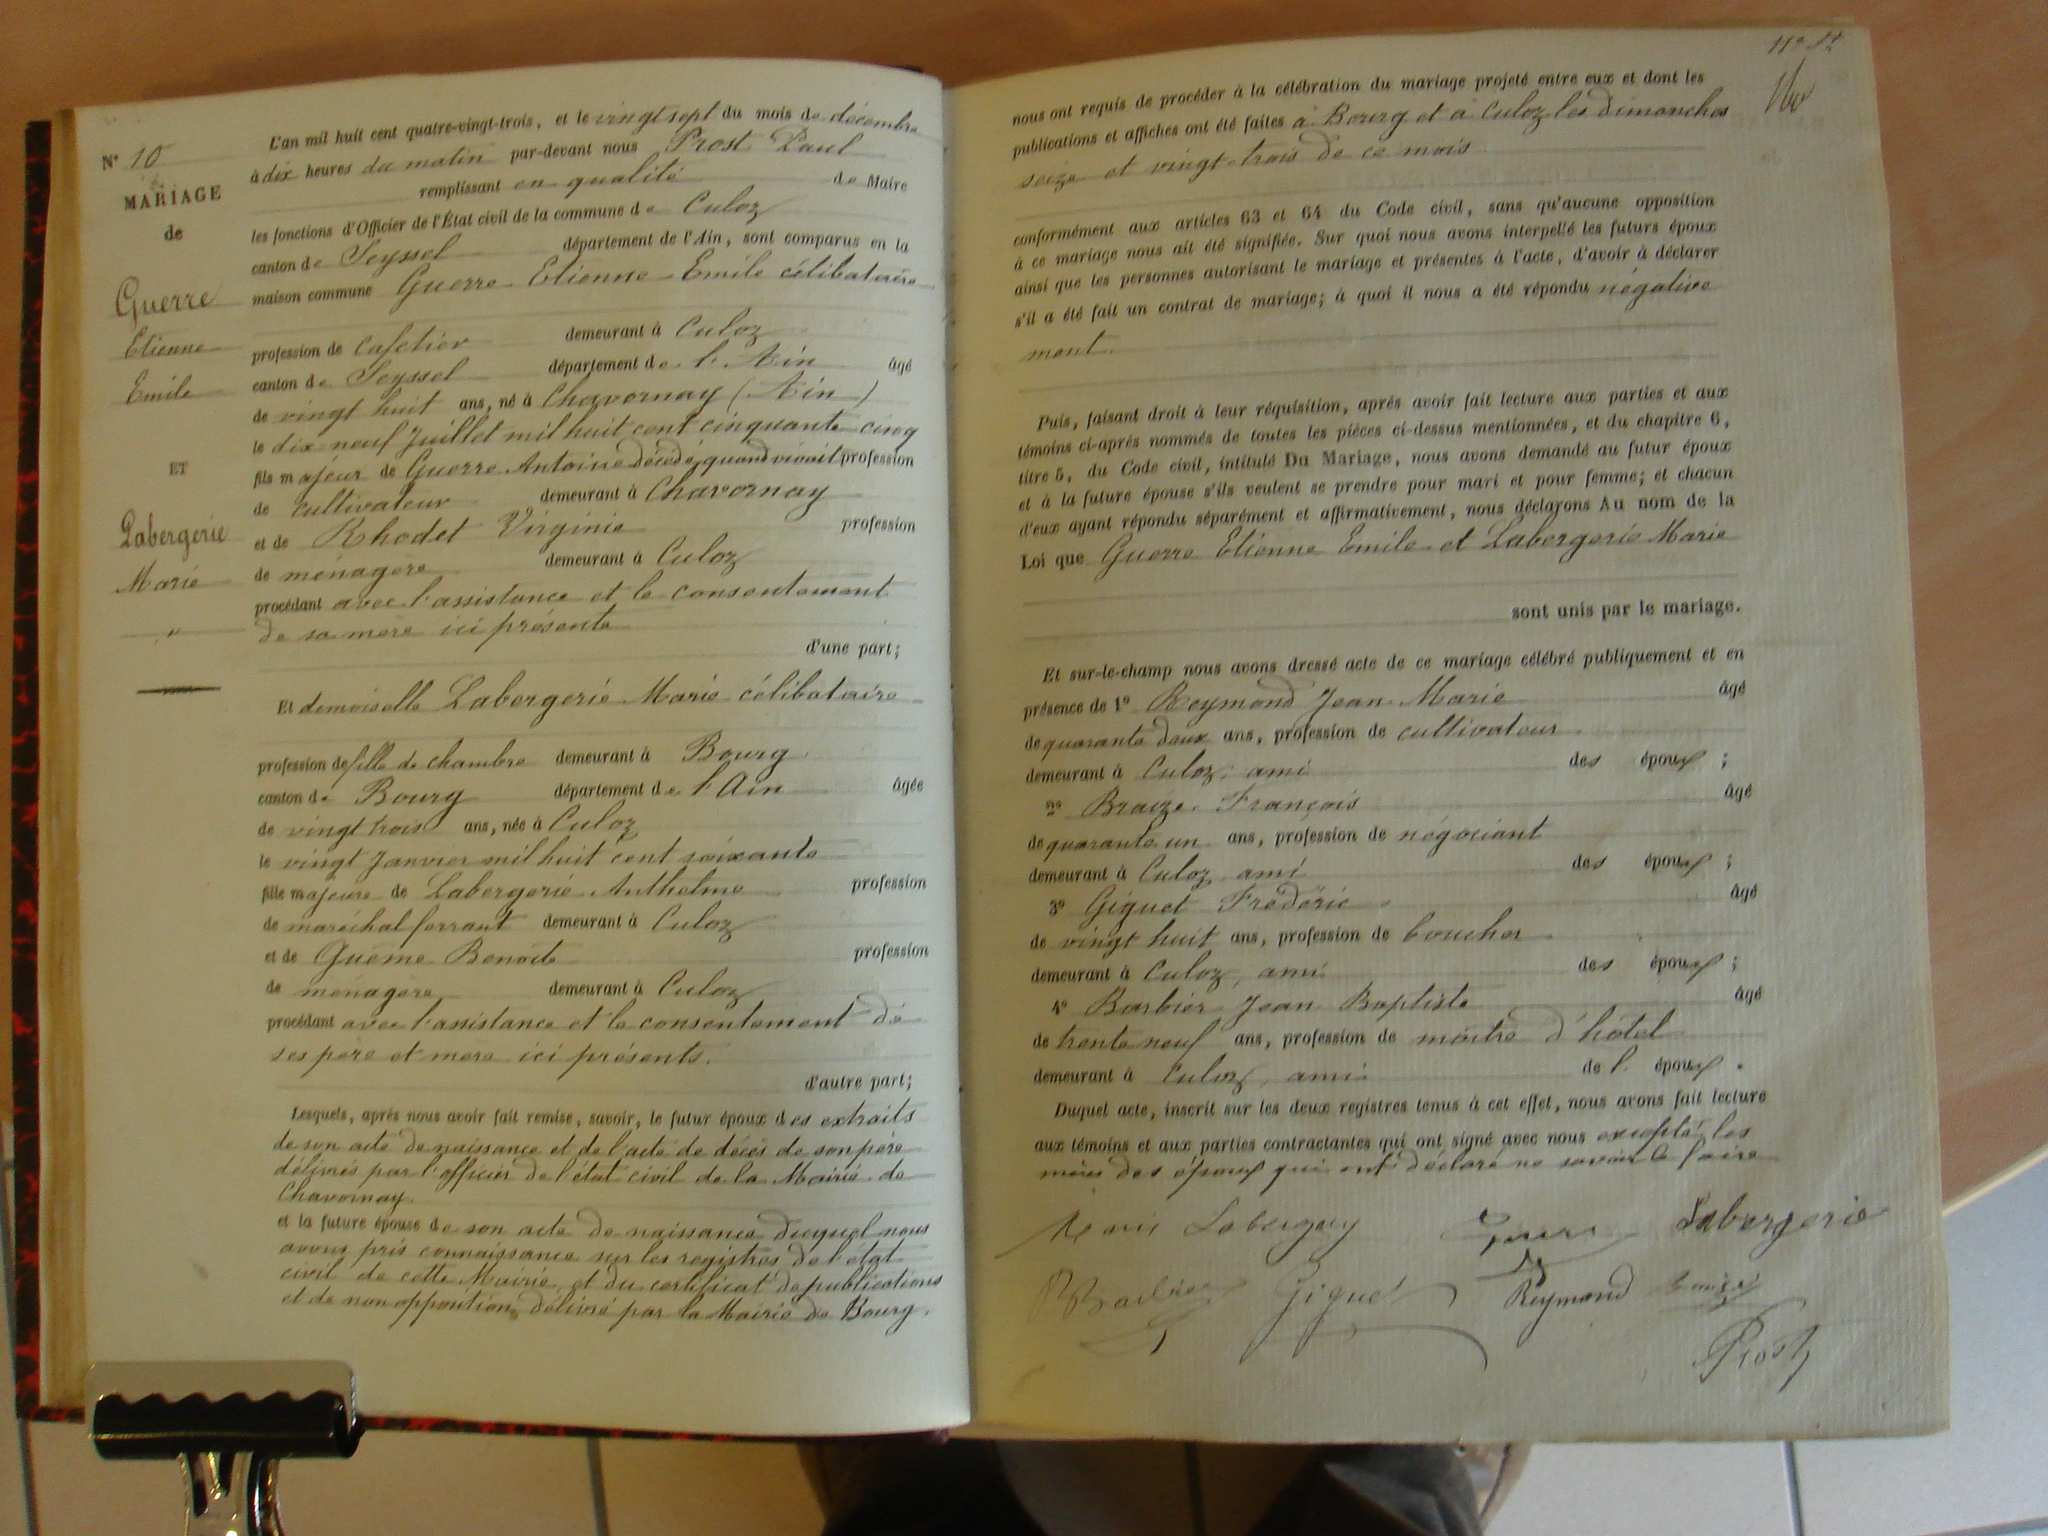 N° 10
MARIAGE
de
Guerre
Etienne
Emile
ET
Labergerie
Marie
"
L'an mil huit cent quatre-vingt-trois, et le vingt sept du mois de décembre
à dix heures du matin par-devant nous Prost Paul
remplissant en qualité de Maire
les fonctions d'Officier de l'État civil de la commune de Culoz
canton de Seyssel département de l'Ain, sont comparus en la
maison commune Guerre Etienne Emile célibataire
profession de cafetier demeurant à Culoz
canton de Seyssel département de l'Ain âgé
de vingt huit ans, né à Chavornay (Ain)
le dix neuf Juillet mil huit cent cinquante cinq
fils majeur de Guerre Antoine décédé, quand vivait profession
de cultivateur demeurant à Chavornay
et de Rhodet Virginie profession
de ménagère demeurant à Culoz
procédant avec l'assistance et le consentement
de sa mère ici présente
d'une part;
Et demoiselle Labergerie Marie célibataire
profession de fille de chambre demeurant à Bourg
canton de Bourg département de l'Ain âgée
de vingt trois ans, née à Culoz
le vingt Janvier mil huit cent soixante
fille majeure de Labergerie Anthelme profession
de maréchal ferrant demeurant à Culoz
et de Guême Benoite profession
de ménagère demeurant à Culoz
procédant avec l'assistance et le consentement de
ses père et mère ici présents.
d'autre part;
Lesquels, après nous avoir fait remise, savoir, le futur époux des extraits
de son acte de naissance et de l'acte de décès de son père
délivrés par l'officier de l'état civil de la Mairie de
Chavornay.
et la future épouse de son acte de naissance duquel nous
avons pris connaissance sur les registres de l'état
civil de cette Mairie, et du certificat de publications
et de non opposition délivré par la Mairie de Bourg.
nous ont requis de procéder à la célébration du mariage projeté entre eux et dont les
publications et affiches ont été faites à Bourg et à Culoz les dimanches
seize et vingt-trois de ce mois
conformément aux articles 63 et 64 du Code civil, sans qu'aucune opposition
à ce mariage nous ait été signifiée. Sur quoi nous avons interpellé les futurs époux
ainsi que les personnes autorisant le mariage et présentes à l'acte, d'avoir à déclarer
s'il a été fait un contrat de mariage; à quoi il nous a été répondu négative
ment.
Puis, faisant droit à leur réquisition, après avoir fait lecture aux parties et aux
témoins ci-après nommés de toutes les pièces ci-dessus mentionnées, et du chapitre 6,
titre 5, du Code civil, intitulé Du Mariage, nous avons demandé au futur époux
et à la future épouse s'ils veulent se prendre pour mari et pour femme; et chacun
d'eux ayant répondu séparément et affirmativement, nous déclarons Au nom de la
Loi que Guerre Etienne Emile et Labergerie Marie
sont unis par le mariage.
Et sur-le-champ nous avons dressé acte de ce mariage célébré publiquement et en
présence de 1° Reymond Jean Marie âgé
de quarante deux ans, profession de cultivateur
demeurant à Culoz, ami des époux;
2° Braize François âgé
de quarante un ans, profession de négociant
demeurant à Culoz ami des époux;
3° Giguet Frédéric âgé
de vingt huit ans, profession de boucher
demeurant à Culoz, ami des époux;
4° Barbier Jean Baptiste âgé
de trente neuf ans, profession de maitre d'hôtel
demeurant à Culoz, ami de l'époux.
Duquel acte, inscrit sur les deux registres tenus à cet effet, nous avons fait lecture
aux témoins et aux parties contractantes qui ont signé avec nous excepté les
mères des époux qui ont déclaré ne savoir le faire
Marie Labergery Guerre Labergerie
Barbier Giguet Reymond
Prost